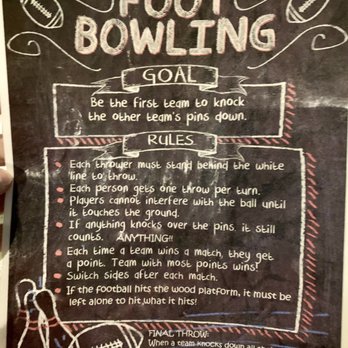 FOOT
BOWLING
GOAL
Be the first team to knock
the other team's pins down.
RULES
Each thrower must stand behind the white
line to throw.
Each person gets one throw per turn.
Players cannot interfere with the ball until
it touches the ground.
If anything knocks over the pins, it still
counts. ANYTHING!!
Each time a team wins a match, they get
a point. Team with most points wins!
Switch sides after each match.
If the football hits the wood platform, it must be
left alone to hit,what it hits!
FINAL THROW:
When a team knocks down all th